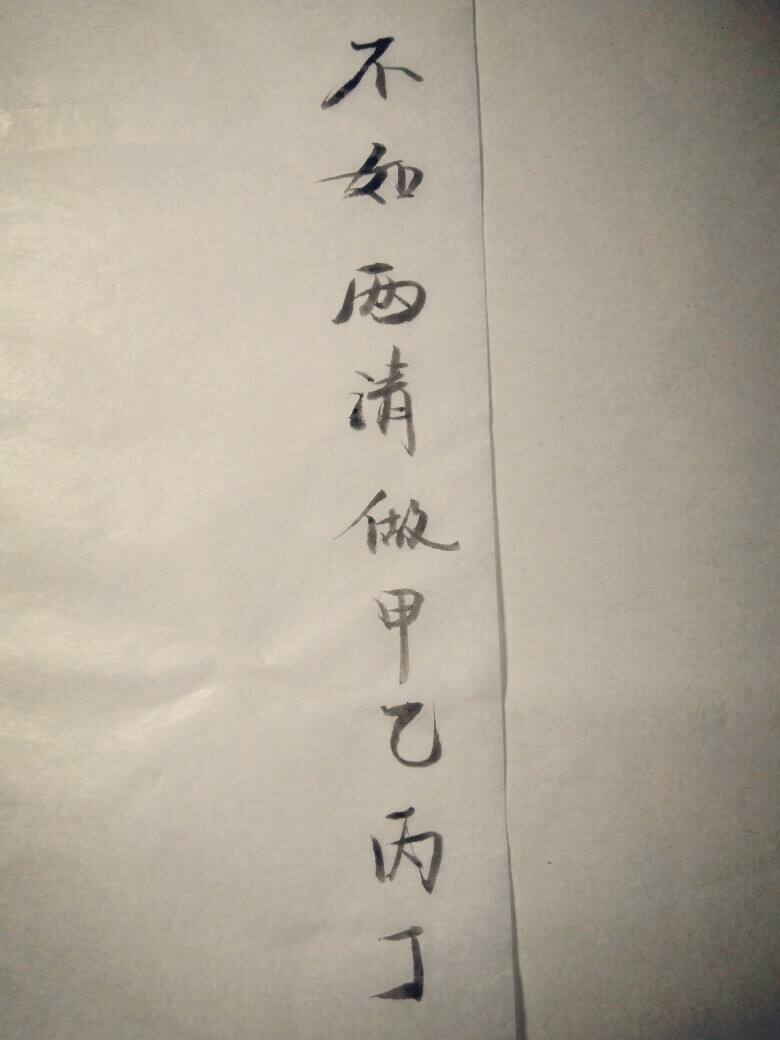 不如两清做甲乙丙丁